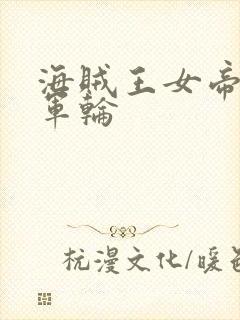 海賊王女帝
軍輪
杭漫文化/暖